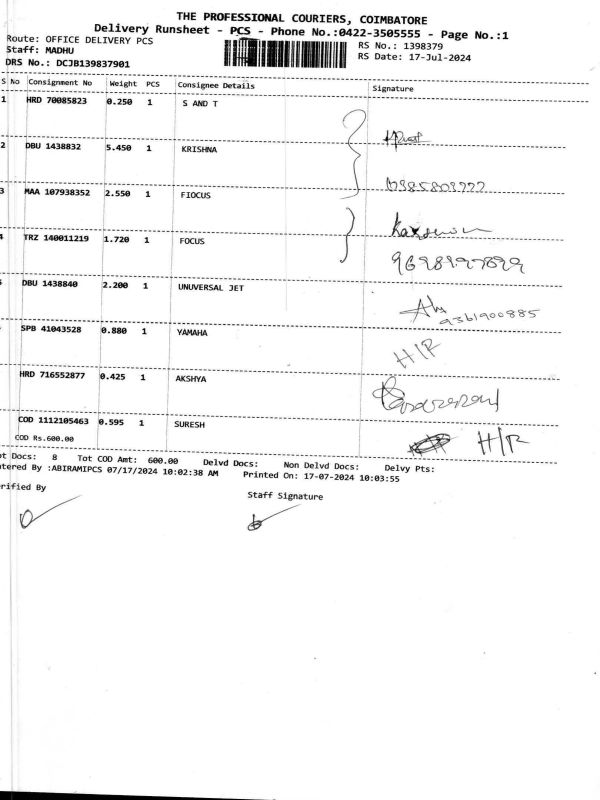 THE PROFESSIONAL COURIERS, COIMBATORE
Delivery Runsheet - PCS - Phone No.:0422-3505555 - Page No.:1
Route: OFFICE DELIVERY PCS
RS No.: 1398379
Staff: MADHU
RS Date: 17-Jul-2024
DRS No.: DCJB139837901
S No Consignment No Weight PCS Consignee Details Signature
1 HRD 70085823 0.250 1 S AND T
2 DBU 1438832 5.450 1 KRISHNA
3 MAA 107938352 2.550 1 FIOCUS
4 TRZ 140011219 1.720 1 FOCUS
DBU 1438840 2.200 1 UNUVERSAL JET
9361900885
SPB 41043528 0.880 1 YAMAHA
H/R
HRD 716552877 0.425 1 AKSHYA
COD 1112105463 0.595 1 SURESH
H/R
COD Rs.600.00
ot Docs: 8 Tot COD Amt: 600.00 Delvd Docs: Non Delvd Docs: Delvy Pts:
ntered By :ABIRAMIPCS 07/17/2024 10:02:38 AM Printed On: 17-07-2024 10:03:55
erified By
Staff Signature